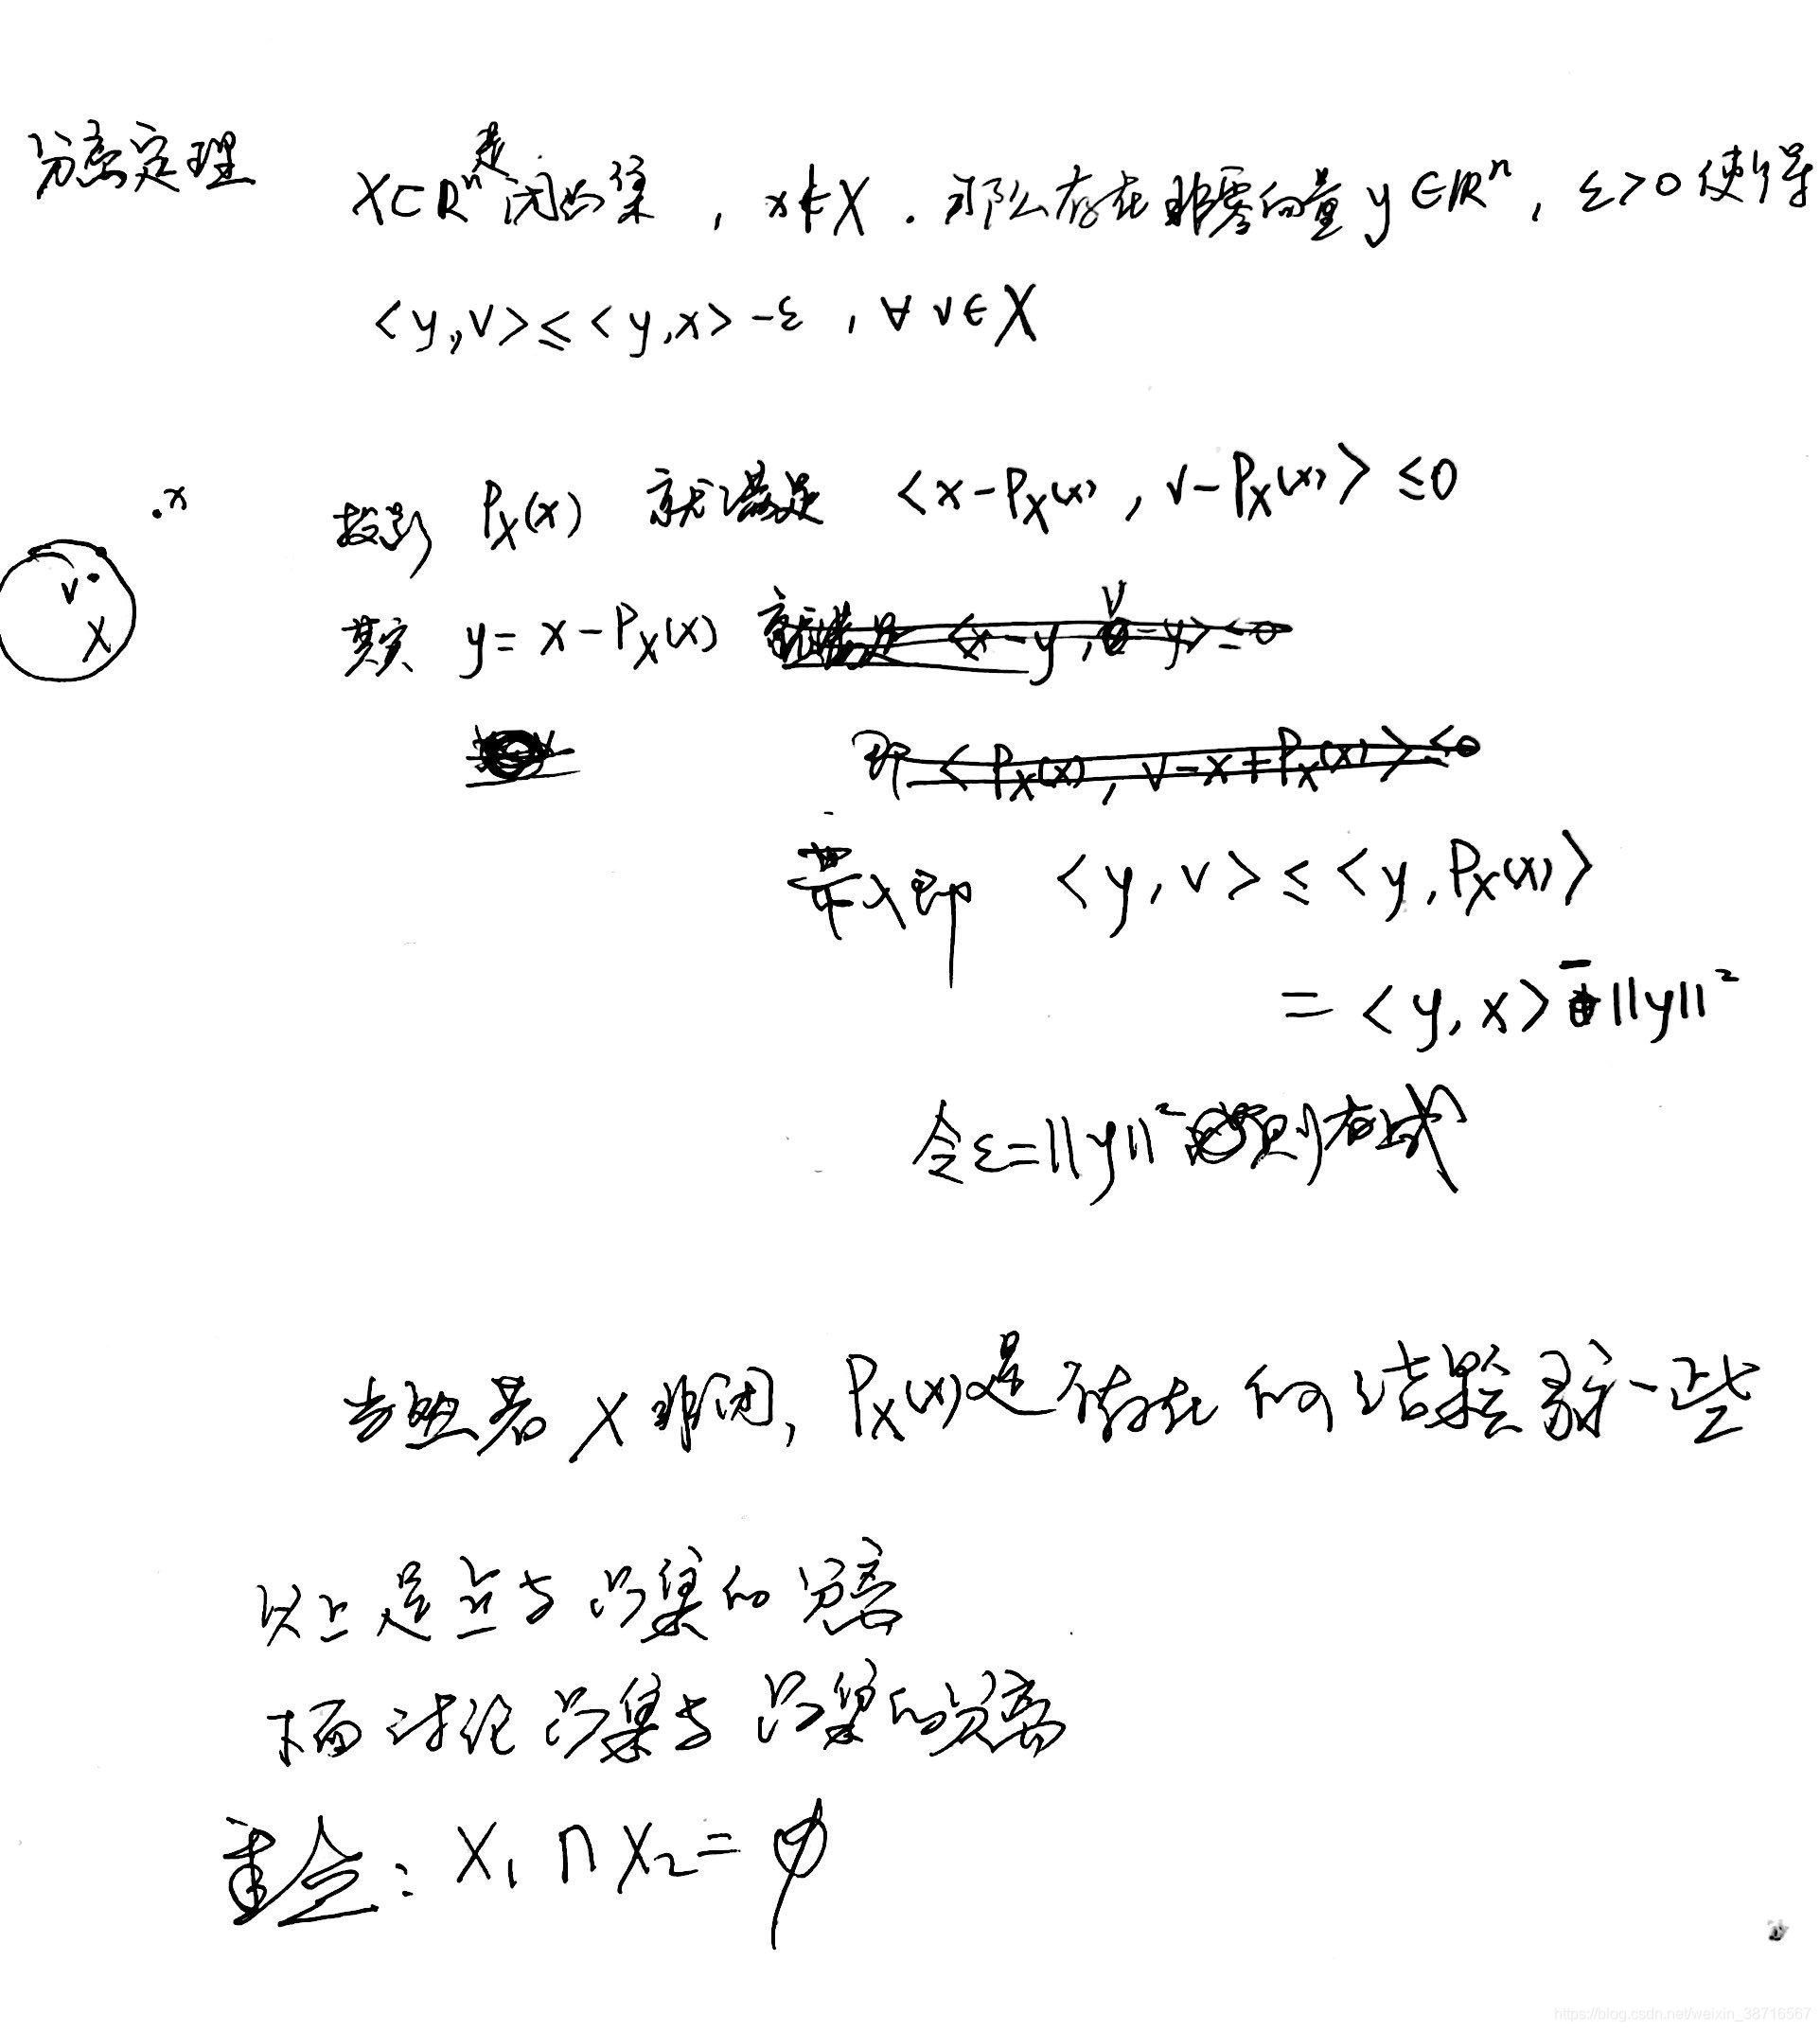 分离定理 X⊂Rⁿ是闭凸集，x∉X．那么存在非零向量 y∈Rⁿ，ε>0 使得
<y,v>≤<y,x>-ε，∀v∈X
.x
投影 P_X(x) 就满足 <x-P_X(x), v-P_X(x)>≤0
v.
X
其实 y=x-P_X(x) <x-y, v-y>≤0
即 <P_X(x), v-x+P_X(x)>≤0
即 <y,v>≤<y,P_X(x)>
=<y,x>-||y||²
令ε=||y||² 则有上式
当然若X非闭，P_X(x)是不存在的 结果弱一些
以上是点与凸集的分离
下面讨论凸集与凸集的分离
: X₁∩X₂=φ
https://blog.csdn.net/weixin_38716567